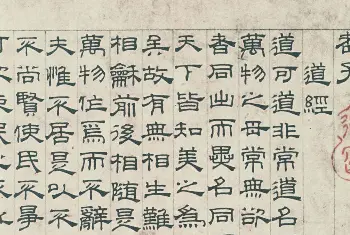 老子
道經
道可道非常道名
萬物之母常無欲
者同出而異名同
天下皆知美之為
矣故有無相生難
相龢前後相隨是
萬物作焉而不辭
夫惟不居是以不
不尚賢使民不爭
可欲使民